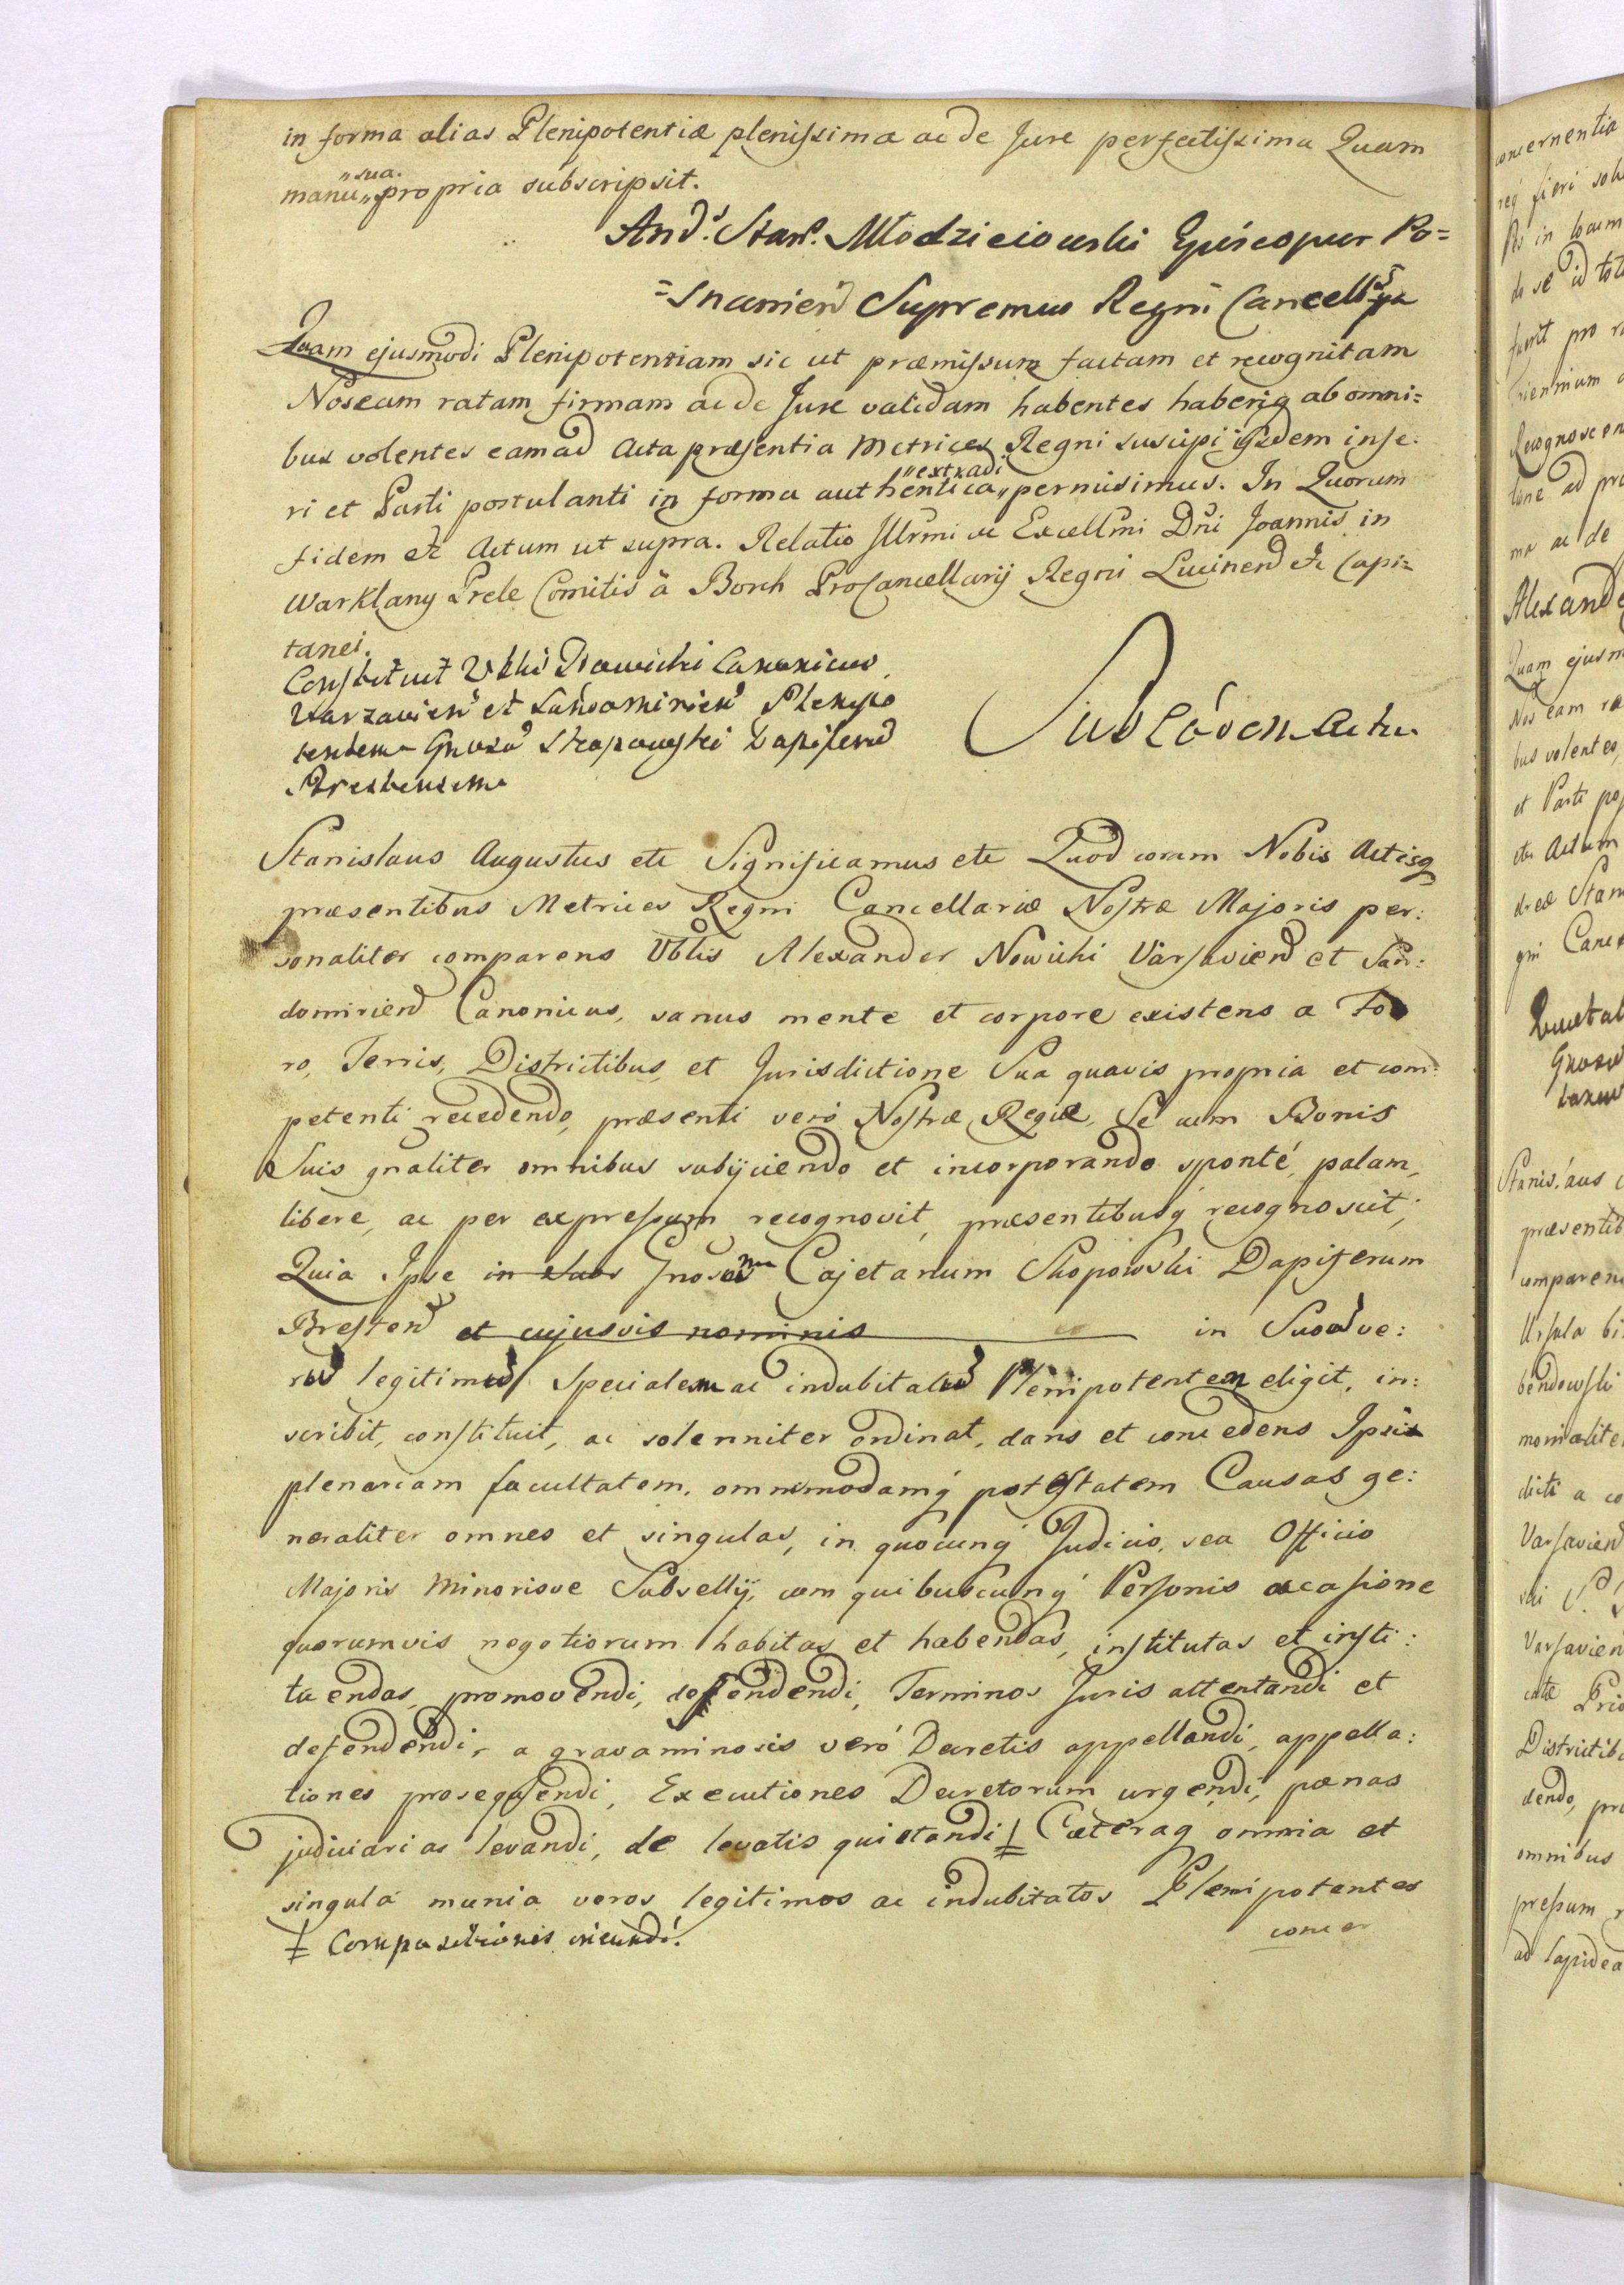 in forma alias Plenipotentiæ plenissima ac de Jure perfectissima Quam
manu „sua„ propria subscripsit.
And: Stan. Młodzieiowski Episcopus Po=
=snanien Supremus Regni Cancell
Quam ejusmodi Plenipotentiam sic ut præmissum factam et recognitam
Nos eam ratam firmam ac de Jure validam habentes haberiq ab omni=
bus volentes eam ad Acta præsentia Metrices Regni suscipi iisdem inse:
ri et Parti postulanti in forma authentica „extradi„ permisimus. In Quorum
fidem etc Actum ut supra. Relatio Illrmi ac Excellmi Dni Joannis in
Warklany Prele Comitis à Borch ProCancellarij Regni Lucinen etc Capi=
tanei.
Constituit Vblis Nowicki Canonicus
Varzavien et Sandomirien Plenipo
tentem Gnosu Skopowski Dapiferu
Brestensem
Susc
Stanislaus Augustus etc Significamus etc Quod coram Nobis Actisq
præsentibus Metrices Regni Cancellariæ Nostræ Majoris per:
sonaliter comparens Vblis Alexander Nowicki Varsavien et San:
domirien Canonicus, sanus mente et corpore existens a Fo
ro, Terris, Districtibus, et Jurisdictione Sua quavis propria et com:
petenti recedendo, præsenti veró Nostræ Regiæ, Se cum Bonis
Suis gnaliter omnibus subijciendo et incorporando sponté, palam,
libere, ac per expressum recognovit, præsentibusq recognoscit;
Quia Ipse in suos Gnosum Cajetanum Skopowski Dapiferum
Bresten et cujusvis nominis in Suum ve:
rum legitimum specialem ac indubitatum Plenipotentem eligit, in:
scribit, constituit, ac solenniter ordinat, dans et concedens Ipsi
plenariam facultatem, omnimodamq potestatem Causas ge:
neraliter omnes et singulas, in quocunq Judicio, seu Officio
Majoris Minorisve Subsellij, cum quibuscunq Personis occasione
quorumvis negotiorum habitas et habendas, institutas et insti:
tuendas, promovendi, deffendendi, Terminos Juris attentandi et
defendendi, a gravaminosis veró Decretis appellandi, appella:
tiones prosequendi, Executiones Decretorum urgendi, pænas
judiciarias levandi, de levatis quietandi ‡ Cæteraq omnia et
singula munia veros legitimos ac indubitatos Plenipotentes
‡ Compositionis ineundi.
concer